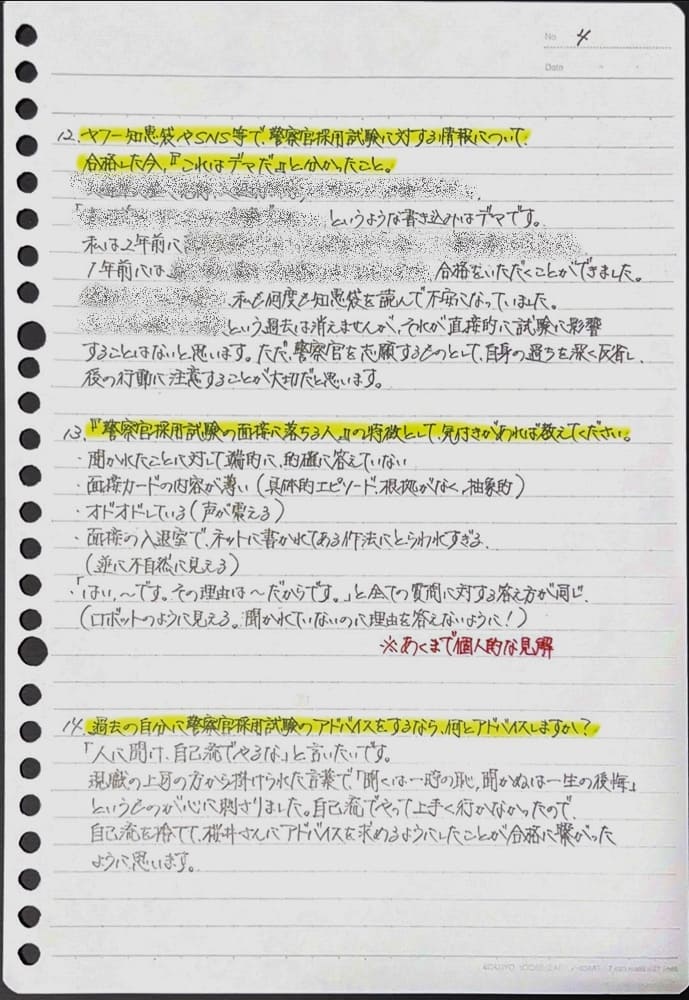 No. 4
Date
12. ヤフー知恵袋やSNS等で、警察官採用試験に対する情報について、
合格した今、『これはデマだ』と分かったこと。
「 というような書き込みはデマです。
私は2年前に
1年前には 合格をいただくことができました。
私も何度も知恵袋を読んで不安になっていました。
という過去は消えませんが、それが直接的に試験に影響
することはないと思います。ただ、警察官を志願するものとして、自身の過ちを深く反省し、
後の行動に注意することが大切だと思います。
13. 『警察官採用試験の面接に落ちる人。』の特徴として、見付きがあれば教えてください。
・聞かれたことに対して端的に、的確に答えていない
・面接カードの内容が薄い(具体的エピソード、根拠がなく、抽象的)
・オドオドしている(声が震える)
・面接の入退室で、ネットに書かれてある作法にとらわれすぎる。
(逆に不自然に見える)
・「はい、〜です。その理由は〜だからです。」と全ての質問に対する答え方が同じ。
(ロボットのように見える。聞かれていないのに理由を答えないように!)
※あくまで個人的な見解
14. 過去の自分に警察官採用試験のアドバイスをするなら、何とアドバイスしますか?
「人に聞け、自己流でやるな」と言いたいです。
現職の上司の方から掛けられた言葉で、「聞くは一時の恥、聞かぬは一生の後悔」
というものが心に刺さりました。自己流でやって上手く行かなかったので、
自己流を捨てて、桜井さんにアドバイスを求めるようにしたことが合格に繋がった
ように思います。